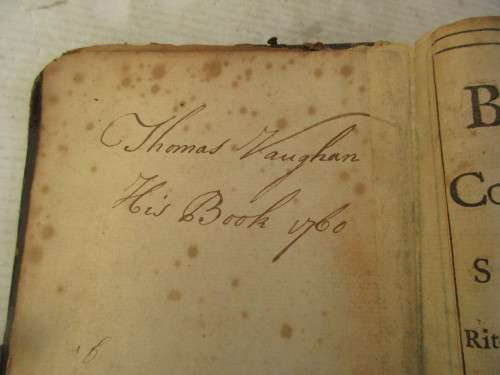 Thomas Vaughan
His Book 1760
6
B
Co
S
Rit